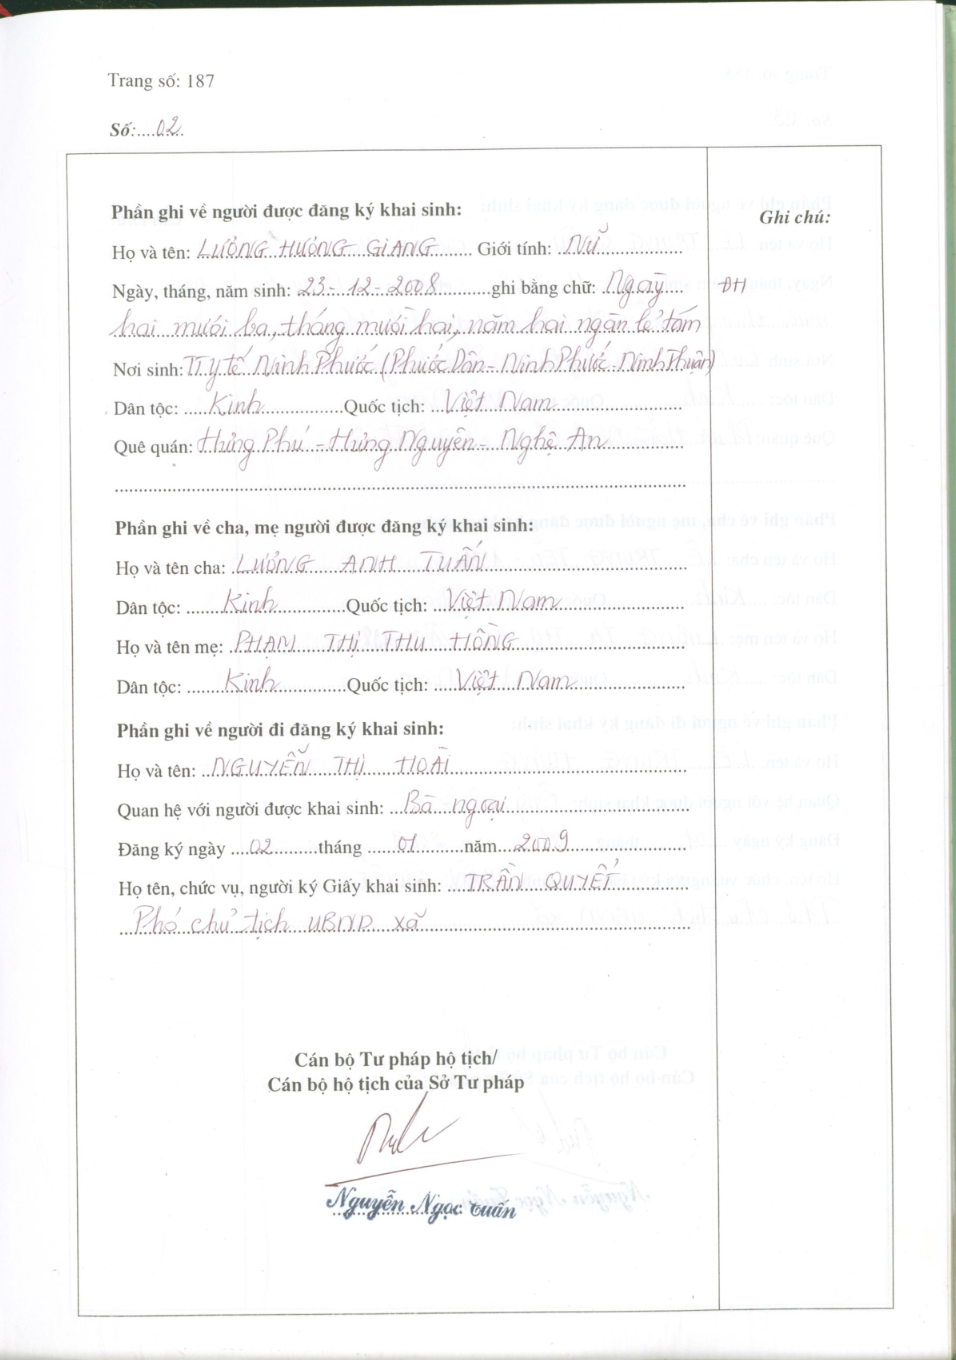 Trang số: 187
Số:....02..
Phần ghi về người được đăng ký khai sinh:
Ghi chú:
Họ và tên: LƯƠNG HƯƠNG GIANG Giới tính: Nữ
Ngày, tháng, năm sinh: 23-12-2008 ghi bằng chữ: Ngày
ĐH
hai mươi ba, tháng mười hai, năm hai ngàn lẻ tám
Nơi sinh: TTy tế Ninh Phước (Phước Dân - Ninh Phước - Ninh Thuận)
Dân tộc: Kinh Quốc tịch: Việt Nam
Quê quán: Hưng Phú - Hưng Nguyên - Nghệ An
Phần ghi về cha, mẹ người được đăng ký khai sinh:
Họ và tên cha: LƯƠNG ANH TUẤN
Dân tộc: Kinh Quốc tịch: Việt Nam
Họ và tên mẹ: PHẠM THỊ THU HỒNG
Dân tộc: Kinh Quốc tịch: Việt Nam
Phần ghi về người đi đăng ký khai sinh:
Họ và tên: NGUYỄN THỊ HOÀI
Quan hệ với người được khai sinh: Bà ngoại
Đăng ký ngày 02 tháng 01 năm 2009
Họ tên, chức vụ, người ký Giấy khai sinh: TRẦN QUYẾT
Phó chủ tịch UBND xã
Cán bộ Tư pháp hộ tịch/
Cán bộ hộ tịch của Sở Tư pháp
Nguyễn Ngọc Tuấn